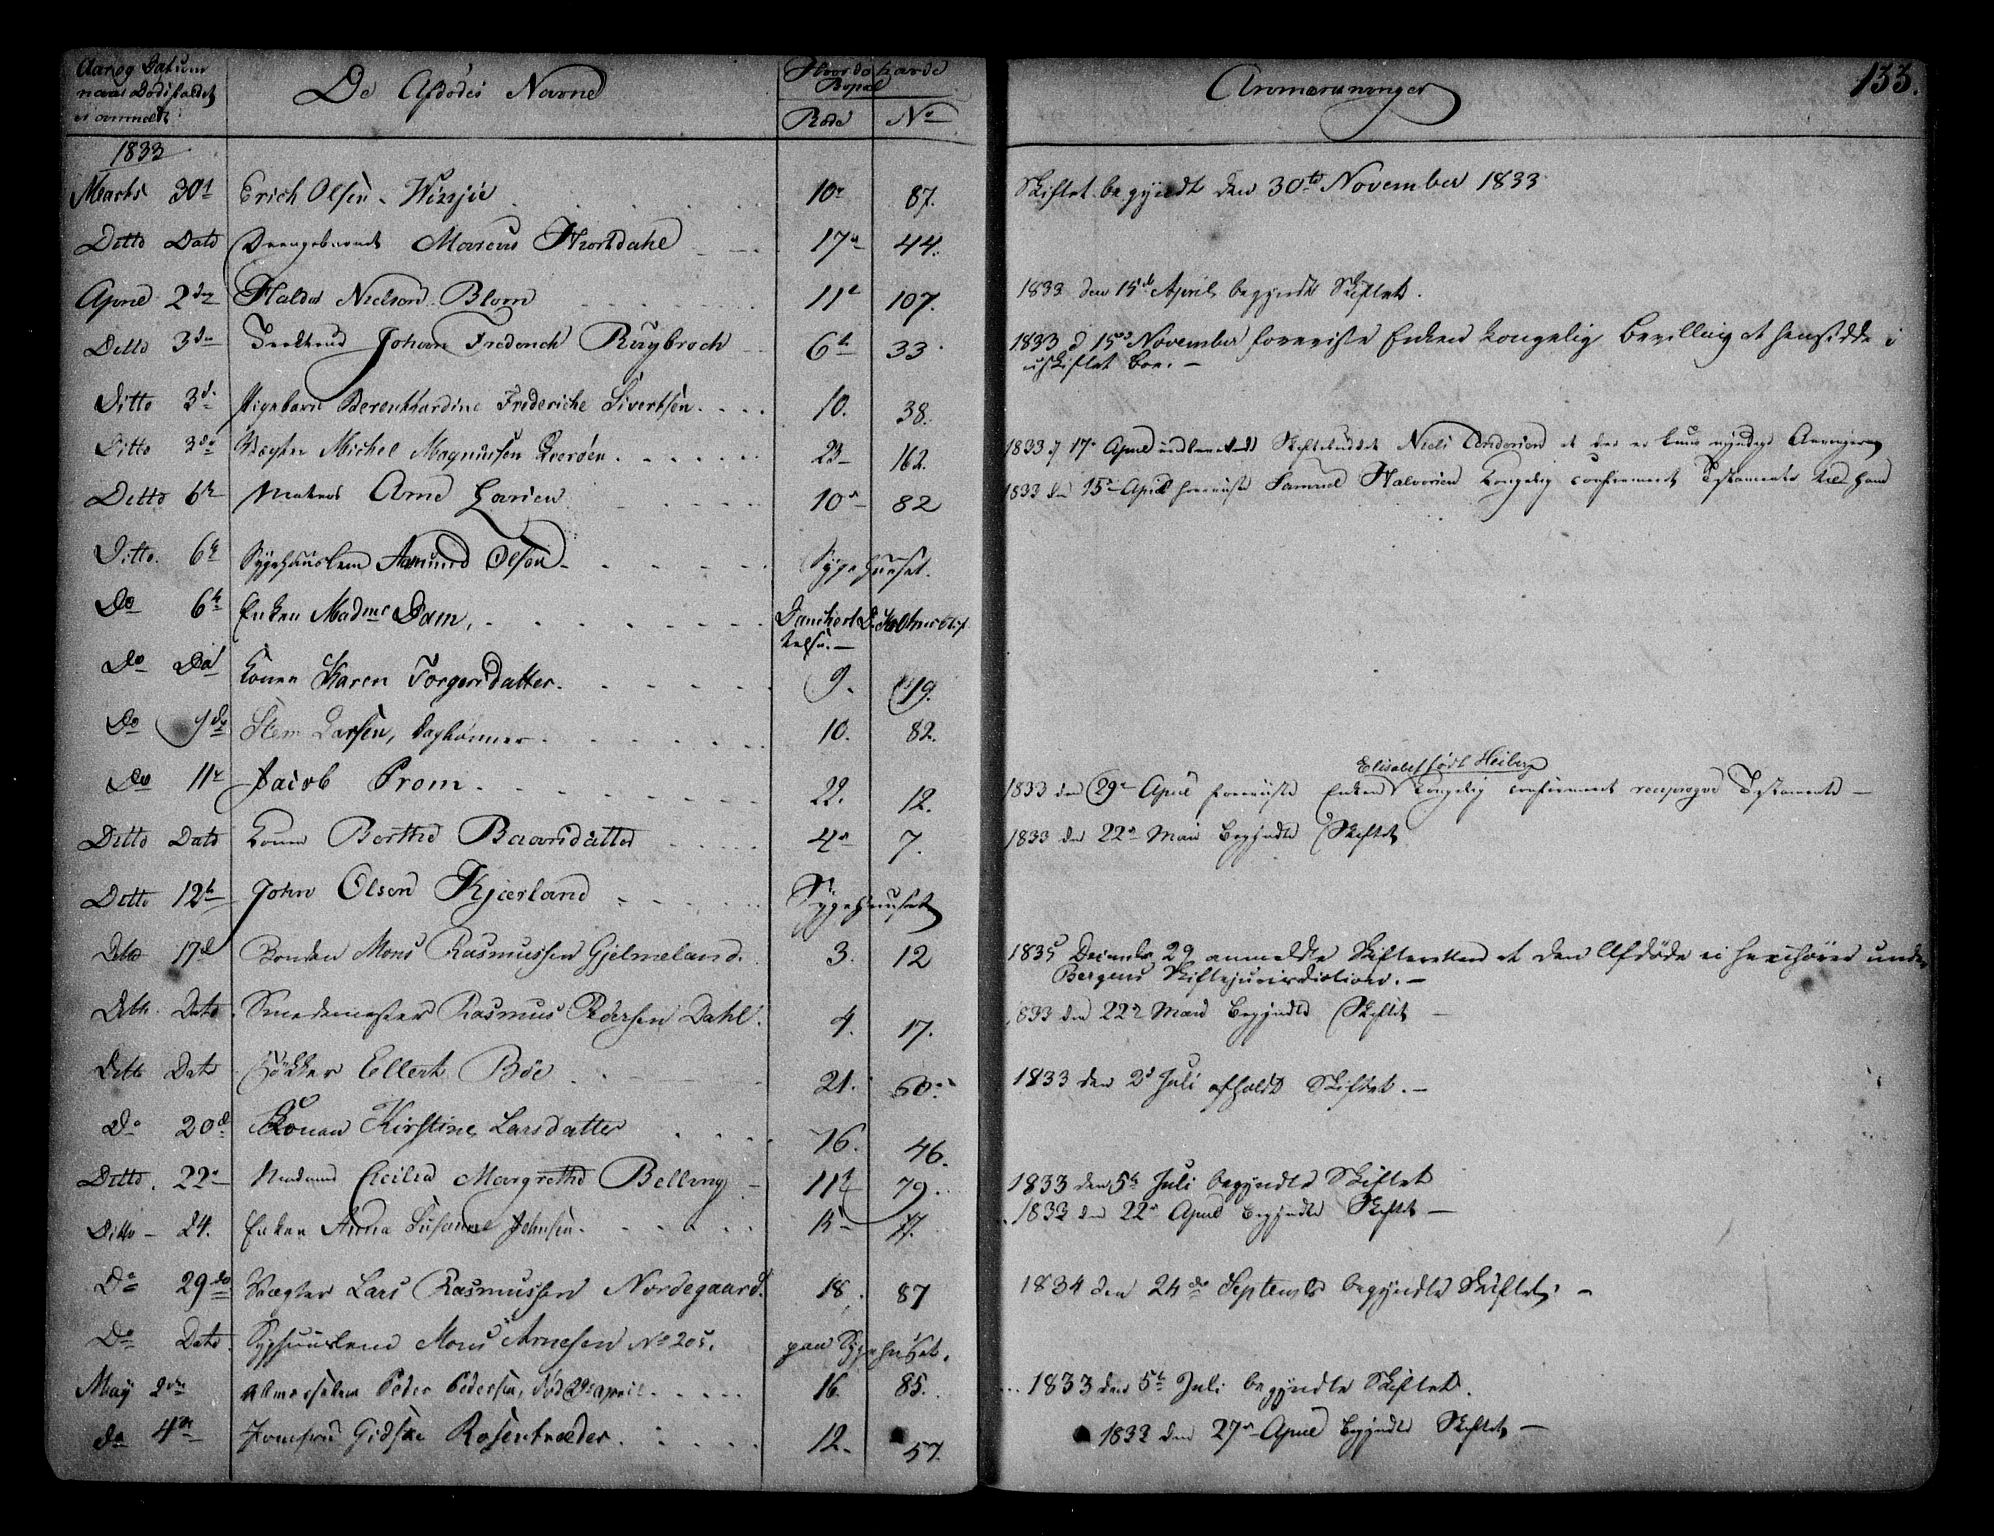 Aar og Datum
naar Dødsfaldet
er anmeldt
De Afdødes Navne
Hvor de havde
Bopæl
Rode
No
Anmærkninger
133.
1833
Marts 30t Erich Olsen 10 87. Skiftet begyndt den 30te November 1833
Ditto Dato Drengebarnet Marcus Thortdahl 17 44.
April 2den Haldor Nielsen Blom 11 107. 1833 den 15de April begyndte Skiftet.
Ditto 3die Johan Frederich Ruybroch 6 33 1833 d 15de November foreviste Enken kongelig Bevilling at hensidde i
uskiftet Boe. –
Ditto 3de Pigebarn Berenthardine Frederiche Sivertsen 10. 38.
Ditto 3de Vægter Michel Magnussen 23 162. 1833 17 April Skiftebudet Niels at der er kun myndige Arvinger
Ditto 6te Matros Arne Larsen 10 82 1833 den 15 April foreviste Samuel Halvorsen Kongelig confirmeret Testamente
Ditto. 6te Sygehuuslem Aamund Olsen Sygehuuset.
Do 6te Enken Madme Dam, Danckert D. Krohns Stif
telse. –
Do Do Konen Karen Torgersdatter. 9. 19.
Do Sten Larsen, Daglønner. 10. 82.
Elisabet født Heiberg
Do 11 Jacob Prom 22. 12. 1833 den 29 April foreviste Enken Kongelig confirmeret reciproqve Testamente –
Ditto Dato Konen Berthe Baarsdatter 4 7. 1833 den 22 Maii Begyndte Skiftet
Ditto 12te John Olsen Kjærland Sygehuuset
Ditto 17de Bonden Mons Rasmussen Gjelmeland. 3. 12 1835 Decembr 29 anmeldte Skifteretten at den Afdøde ei henhører under
Bergens Skiftejurisdiction. –
Ditto. Dato Smedemester Rasmus Pedersen Dahl. 4. 17. 1833 den 22 Maii Begyndte Skiftet –
Ditto Dato Høkker Ellert Böe 21. 60. 1833 den 2d Juli afholdt Skiftet. –
Do 20de Konen Kirstine Larsdatter 16. 46.
Ditto. 22 Madame Cicilia Margrethe Belling 11 79. 1833 den 5te Juli begyndte Skiftet
Ditto – 24. Enken Anna Susanne Johnsen. 1833 den 22 April Begyndte Skiftet –
Do 29de Vægter Lars Rasmussen Nordegaard. 18. 87 1834 den 24de September begyndte Skiftet. –
Do Dato. Sygehuuslem Mons Arnesen No 205. paa Sygehuset.
May 2den Almesselem Peder Pedersen, død 29 april 16. 85. 1833 den 5te Juli begyndte Skiftet.
do 4de Jomfrue Gidske Rosentræder. 12. 57. 1833 den 27 April Begyndte Skiftet –